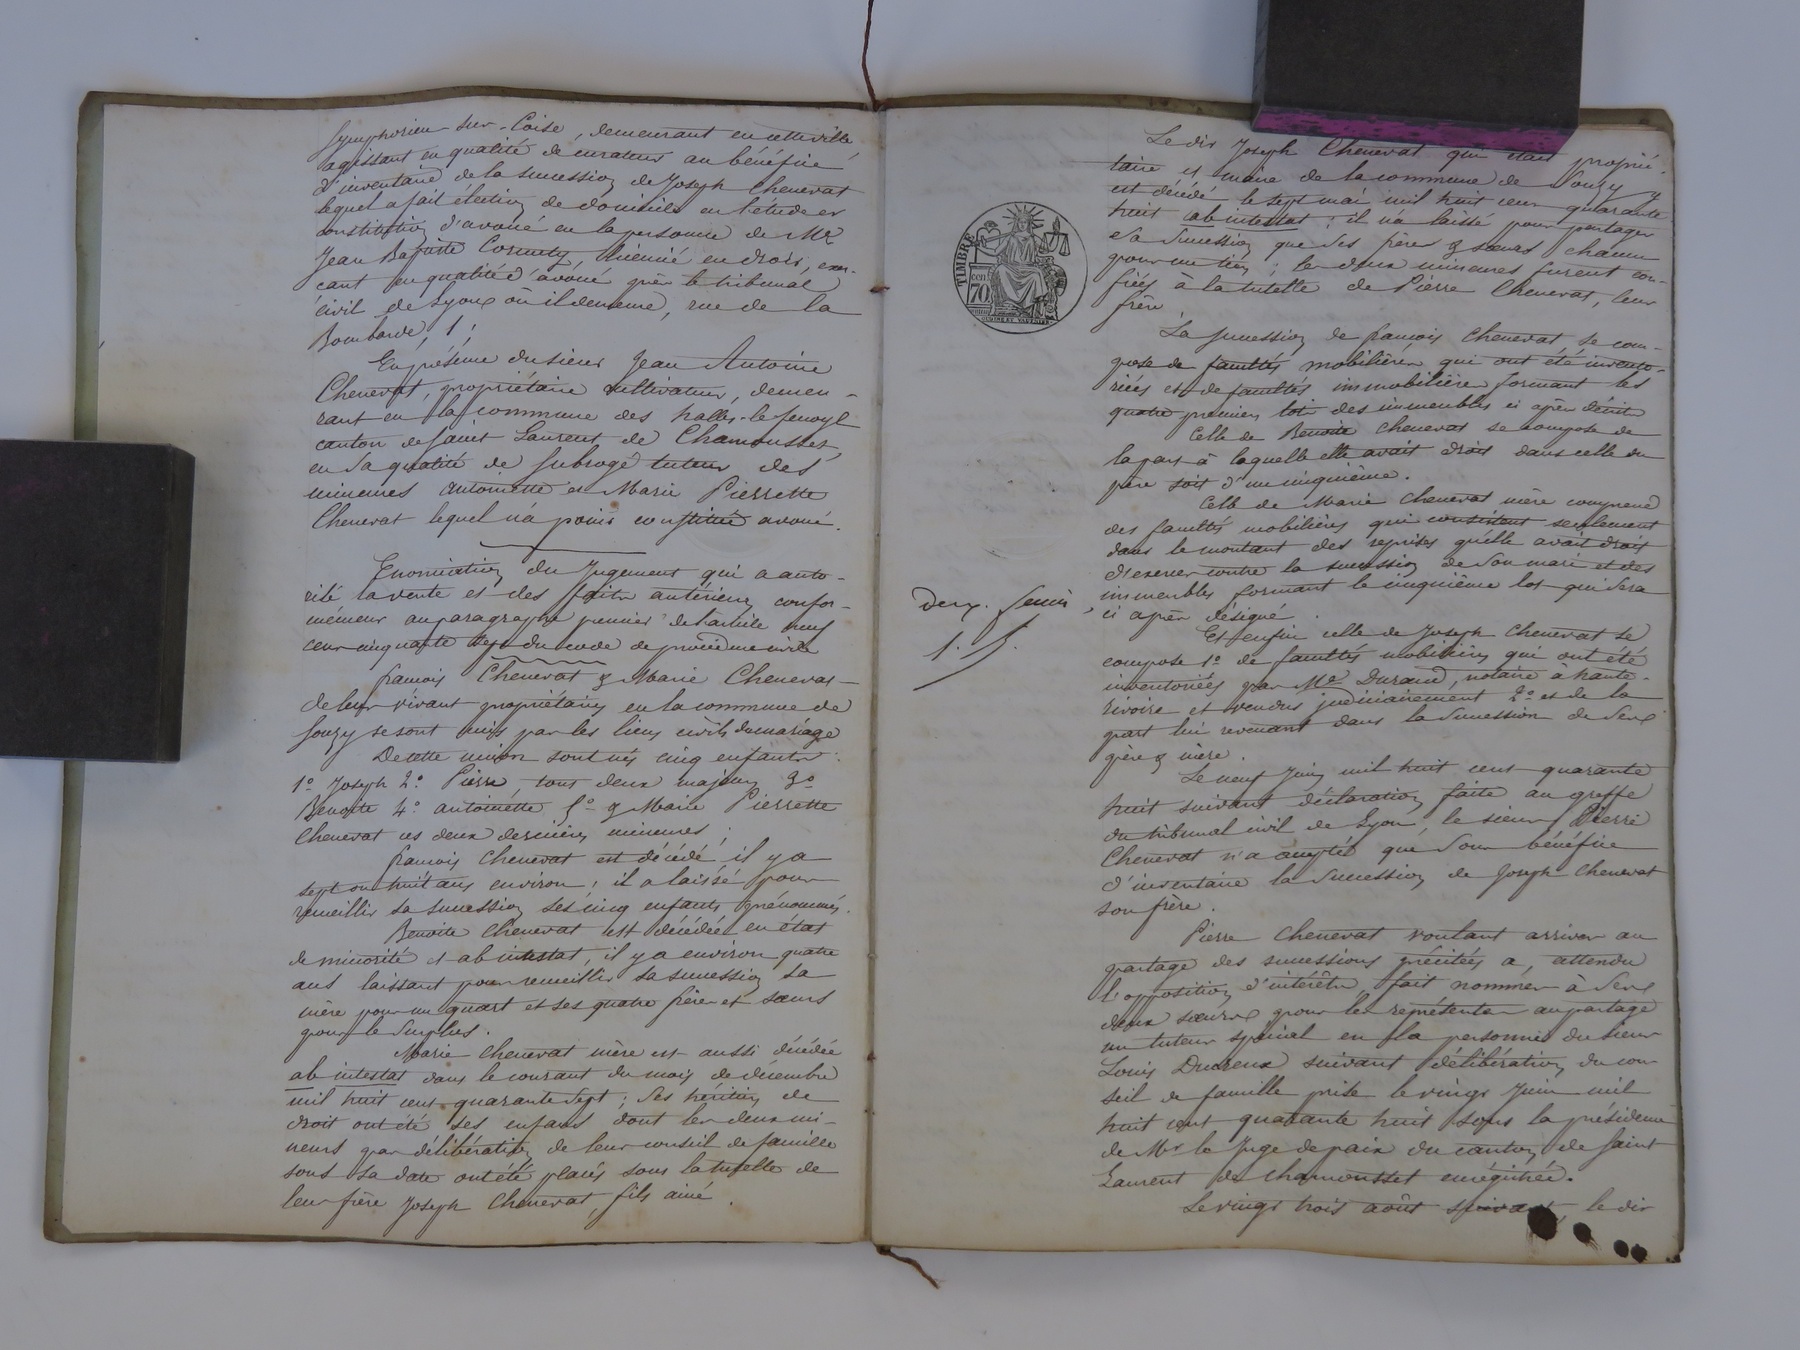 Symphorien-sur-Coise, demeurant en cette ville
agissant en qualité de curateur au bénéfice
d'inventaire de la succession de Joseph Chenevat
lequel a fait élection de domicile en l'étude et
constitution d'avoué en la personne de Me
Jean Baptiste Cormuty, licencié en droit, exer-
çant en qualité d'avoué près le tribunal
civil de Lyon où il demeure, rue de la
Bombarde, 1;
En présence du sieur Jean Antoine
Chenevat, propriétaire cultivateur, demeu-
rant en la commune des halles-le-fenoyl
canton de Saint Laurent de Chamousset,
en sa qualité de subrogé tuteur des
mineures antoinette et Marie Pierrette
Chenevat lequel n'a point constitué avoué.
Enonciation du Jugement qui a auto-
risé la vente et des faits antérieurs confor-
mément au paragraphe premier de l'article neuf
cent cinquante sept du code de procédure civile
françois Chenevat & Marie Chenevat
de leur vivant propriétaires en la commune de
Souzy se sont unis par les liens civils du mariage
De cette union sont nés cinq enfants:
1º Joseph 2º Pierre, tous deux majeurs 3º
Benoite 4º antoinette 5º & Marie Pierrette
Chenevat ces deux dernières mineures;
françois Chenevat est décédé il y a
sept ou huit ans environ; il a laissé pour
recueillir sa succession ses cinq enfants prénommés.
Benoite Chenevat est décédée en état
de minorité et ab intestat, il y a environ quatre
ans laissant pour recueillir sa succession sa
mère pour un quart et ses quatre frères et sœurs
pour le surplus.
Marie Chenevat mère est aussi décédée
ab intestat dans le courant du mois de décembre
mil huit cent quarante sept; ses héritiers de
droit ont été ses enfants dont les deux mi-
neurs par délibération de leur conseil de famille
sous sa date ont été placés sous la tutelle de
leur frère Joseph Chenevat, fils ainé.
TIMBRE
70
deux. 
Le dit Joseph Chenevat qui était proprié-
taire et maire de la commune de Souzy y
est décédé le sept mai mil huit cent quarante
huit ab intestat; il n'a laissé pour partager
sa succession que ses frère & sœurs chacun
pour un tiers; les deux mineures furent con-
fiées à la tutelle de Pierre Chenevat, leur
frère
La succession de françois Chenevat se com-
pose de facultés mobilières qui ont été invento-
riées et de facultés immobilières formant les
quatre premiers lots des immeubles ci après décrits
Celle de Benoite Chenevat se compose de
la part à laquelle elle avait droit dans celle du
père soit d'un cinquième.
Celle de Marie Chenevat mère comprend
des facultés mobilières qui consistent seulement
dans le montant des reprises qu'elle avait droit
d'exercer contre la succession de son mari et des
immeubles formant le cinquième lot qui sera
ci après désigné.
Et enfin celle de Joseph Chenevat se
compose 1º de facultés mobilières qui ont été
inventoriées par Me Durand, notaire à haute-
rivoire et vendus judiciairement 2º et de la
part lui revenant dans la succession de ses
père & mère.
Le neuf Juin mil huit cent quarante
huit suivant déclaration faite au greffe
du tribunal civil de Lyon, le sieur Pierre
Chenevat n'a accepté que sous bénéfice
d'inventaire la succession de Joseph Chenevat
son frère.
Pierre Chenevat voulant arriver au
partage des successions précitées a, attendu
l'opposition d'intérêts, fait nommer à ses
deux sœurs pour les représenter au partage
un tuteur spécial en la personne du sieur
Louis Ducreux suivant délibération du con-
seil de famille prise le vingt Juin mil
huit cent quarante huit sous la présidence
de Mr le Juge de paix du canton de Saint
Laurent de Chamousset enregistrée.
Le vingt trois août suivant, le dit